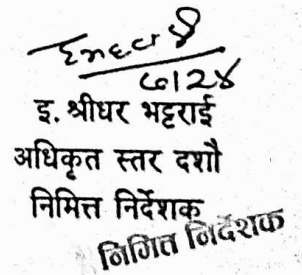 ७।२४
इ. श्रीधर भट्टराई
अधिकृत स्तर दशौ
निमित्त निर्देशक
निमित्त निर्देशक